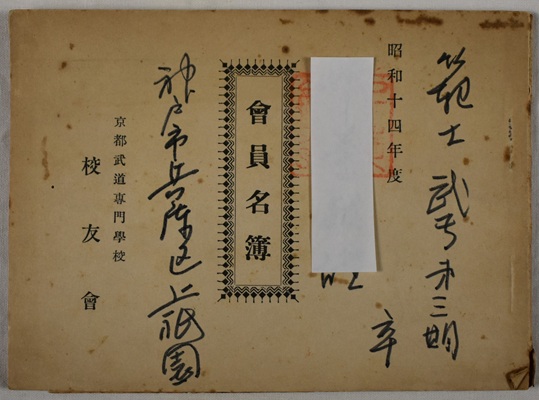 範士 武専第三期
卒
昭和十四年度
會員名簿
神戸市兵庫区上祇園
京都武道専門學校
校友會